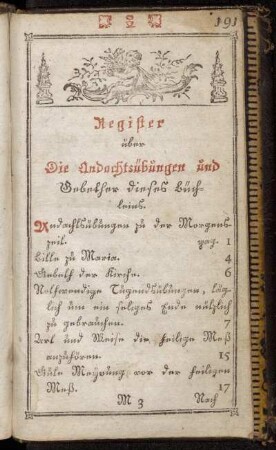 191
Register
über
Die Andachtsübungen und
Gebether dieses Büch-
leins.
Andachtsübungen zu der Morgens-
zeit. pag. 1
Bitte zu Maria. 4
Gebeth der Kirche. 6
Nothwendige Tugendsübungen, täg-
lich um ein seliges Ende nützlich
zu gebrauchen. 7
Art und Weise die heilige Meß
anzuhören. 15
Gute Meynung vor der heiligen
Meß. 17
M 3 Nach